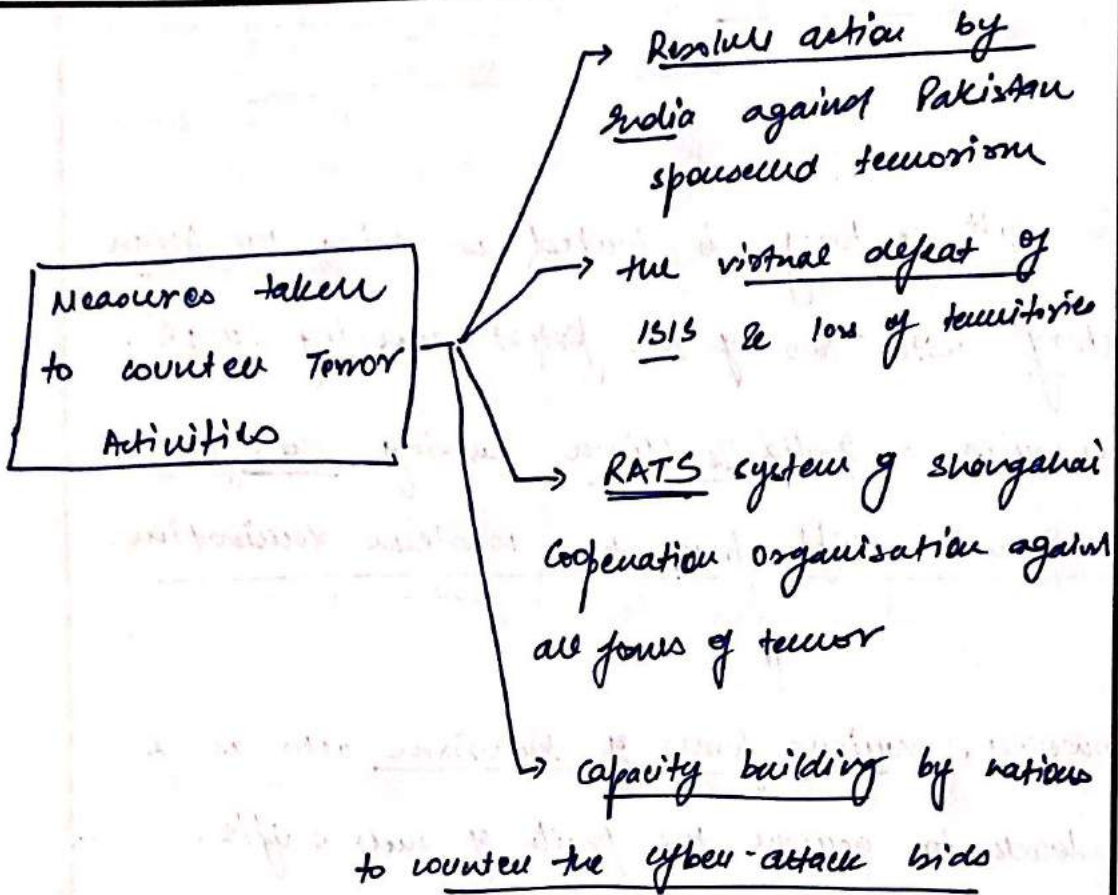 Measures taken
to counter Terror
Activities
Resolute action by
India against Pakistan
sponsered terrorism
the virtual defeat of
ISIS & loss of territories
RATS system of shangahai
cooperation organisation against
all forms of terror
capacity building by nations
to counter the cyber-attack bids